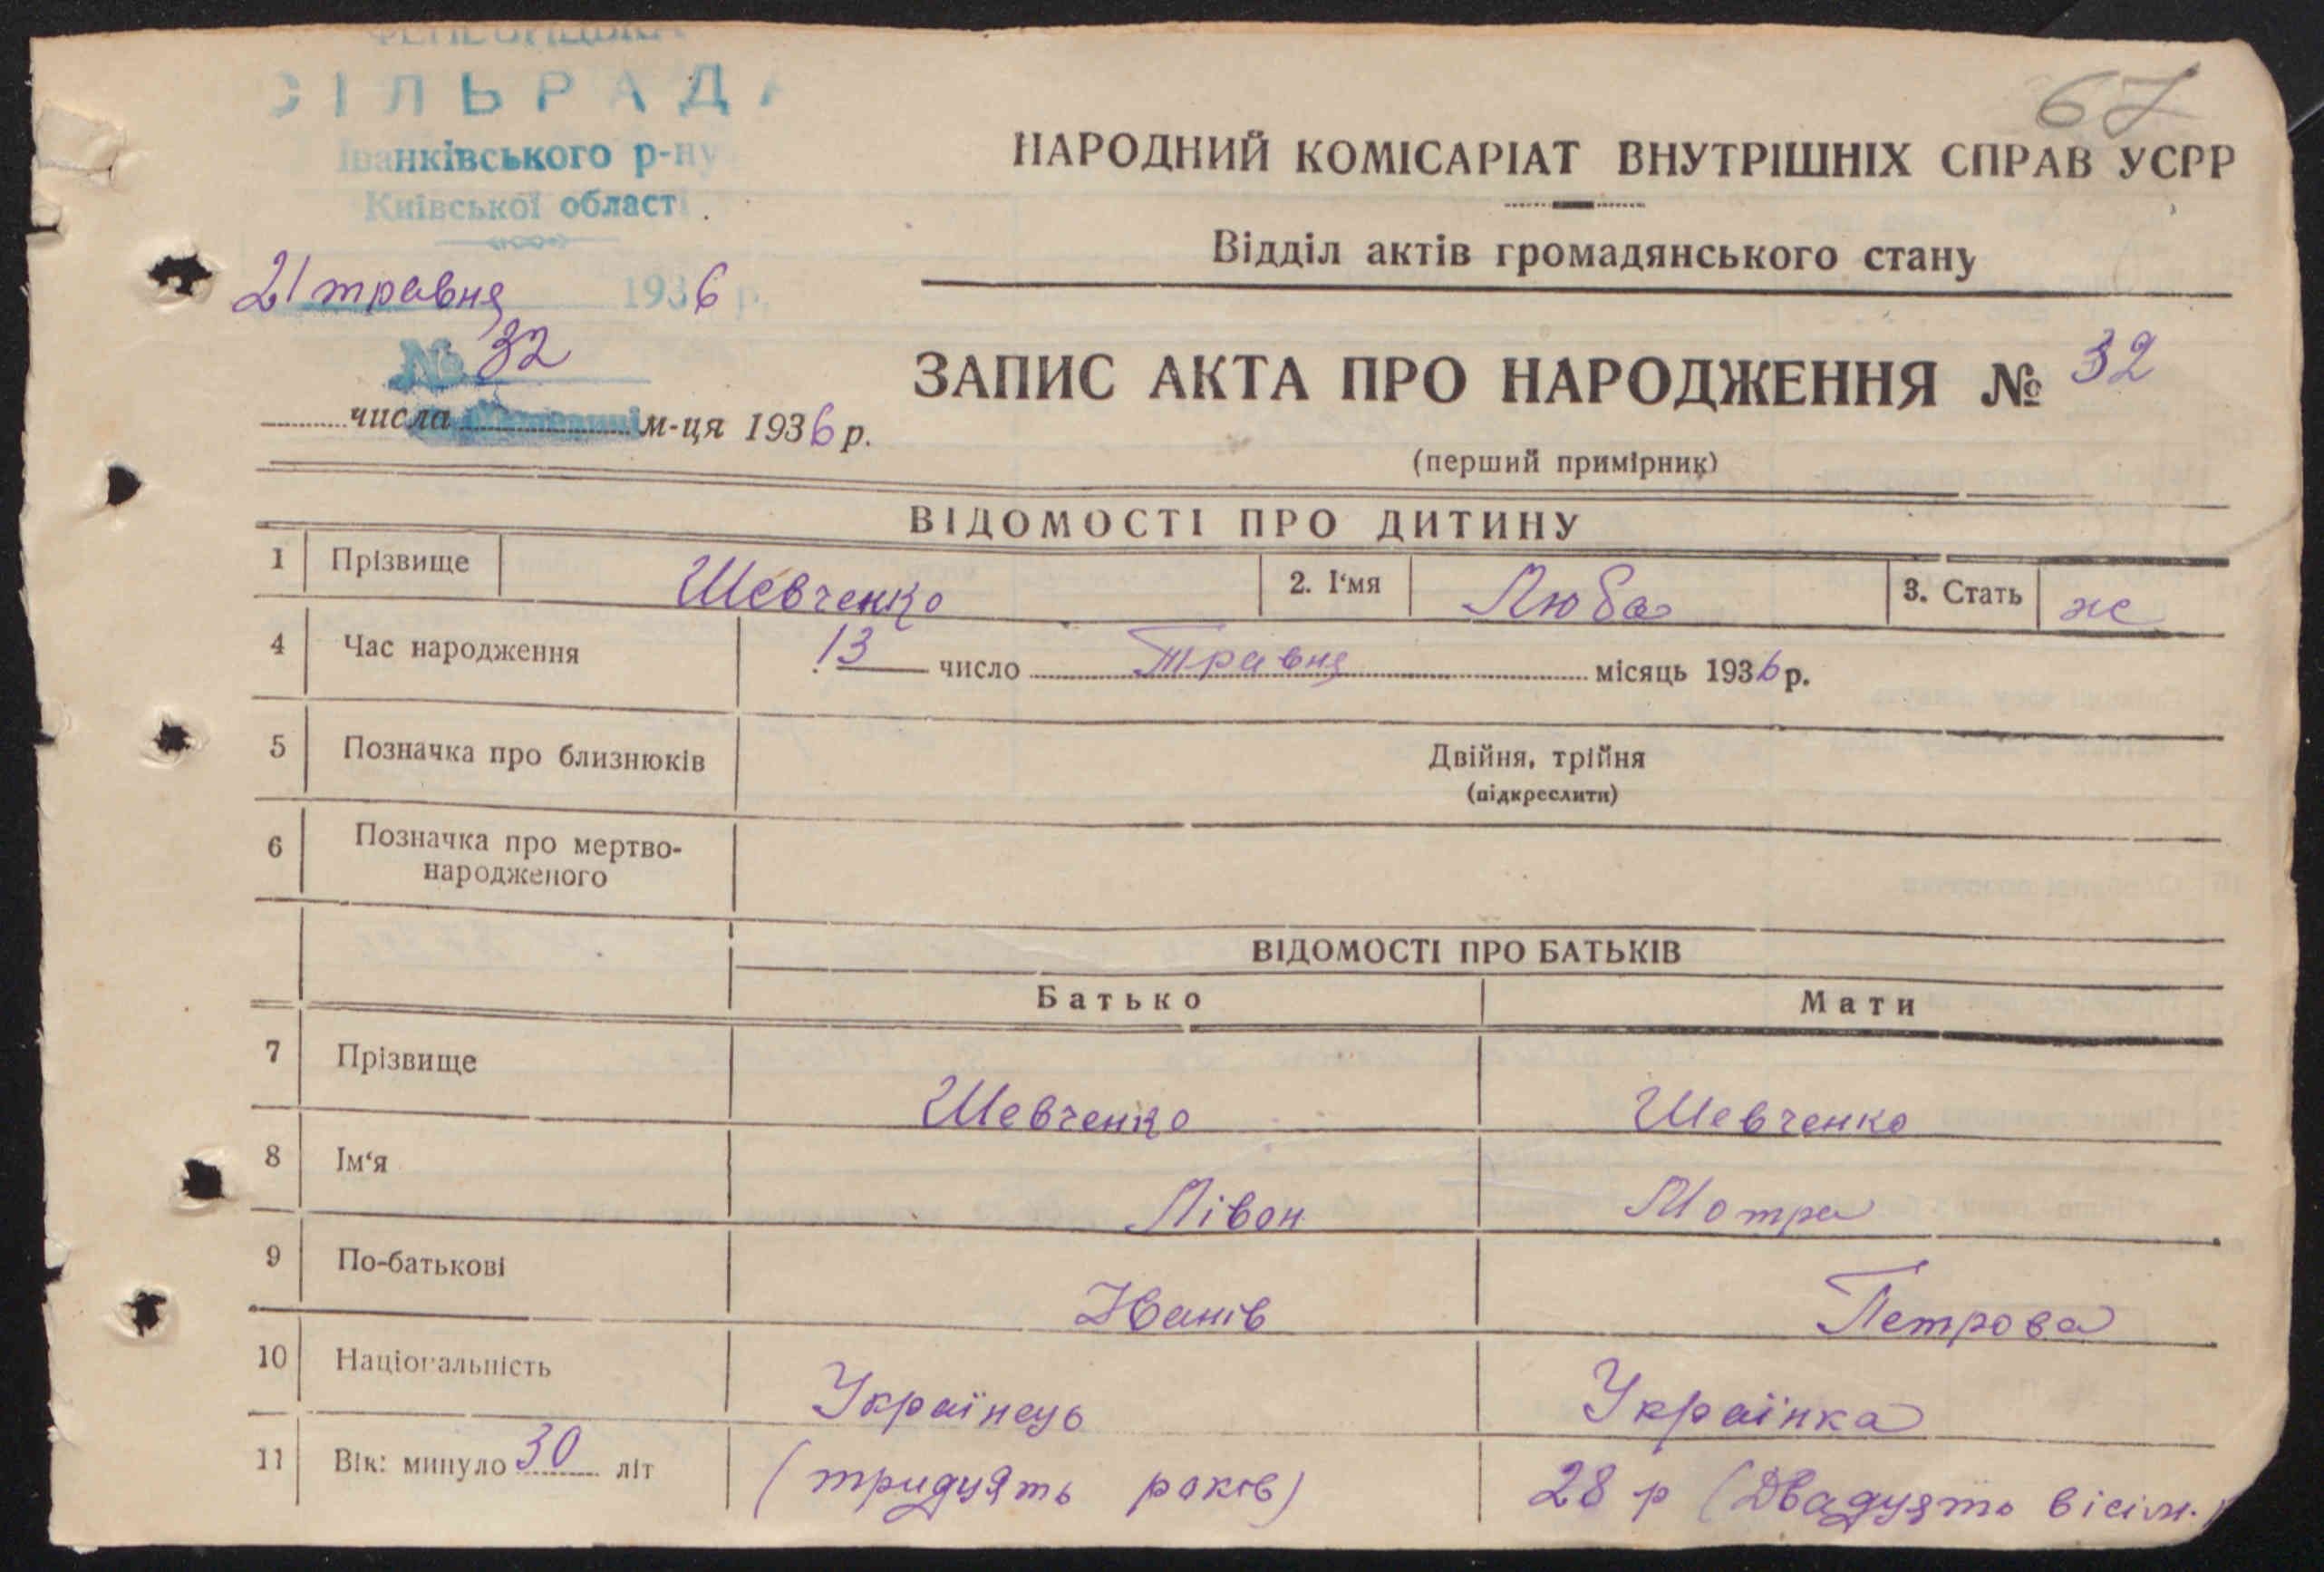 СІЛЬРАДА
Іванківського р-ну
Київської області
21 травня 1936 р.
№ 32
числа м-ця 1936 р.
67
НАРОДНИЙ КОМІСАРІАТ ВНУТРІШНІХ СПРАВ УСРР
Відділ актів громадянського стану
ЗАПИС АКТА ПРО НАРОДЖЕННЯ № 32
(перший примірник)
ВІДОМОСТІ ПРО ДИТИНУ
1 Прізвище Шевченко 2. І'мя Люба 3. Стать ж
4 Час народження 13 число Травня місяць 1936 р.
5 Позначка про близнюків Двійня, трійня
(підкреслити)
6 Позначка про мертво-
народженого
ВІДОМОСТІ ПРО БАТЬКІВ
Батько Мати
7 Прізвище Шевченко Шевченко
8 Ім'я Лівон Мотра
9 По-батькові Іванів Петрова
10 Національність Українець Українка
11 Вік: минуло 30 літ (тридцять років) 28 р (Двадцять вісім.)